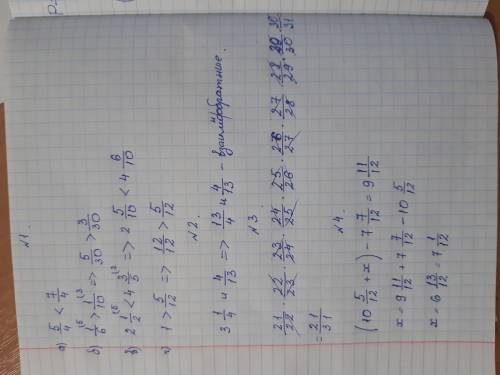 №1.
а) 5/4 < 7/4
б) 1/6 (5 > 1/10 (3 => 5/30 > 3/30
в) 2 1/2 (5 < 4 3/5 (2 => 2 5/10 < 4 6/10
г) 1 > 5/12 => 12/12 > 5/12
№2.
3 1/4 и 4/13 => 13/4 и 4/13 - взаимнообратные.
№3
21/22 · 22/23 · 23/24 · 24/25 · 25/26 · 26/27 · 27/28 · 28/29 · 29/30 · 30/31
= 21/31
№4.
(10 5/12 + x) - 7 7/12 = 9 11/12
x = 9 11/12 + 7 7/12 - 10 5/12
x = 6 13/12 = 7 1/12